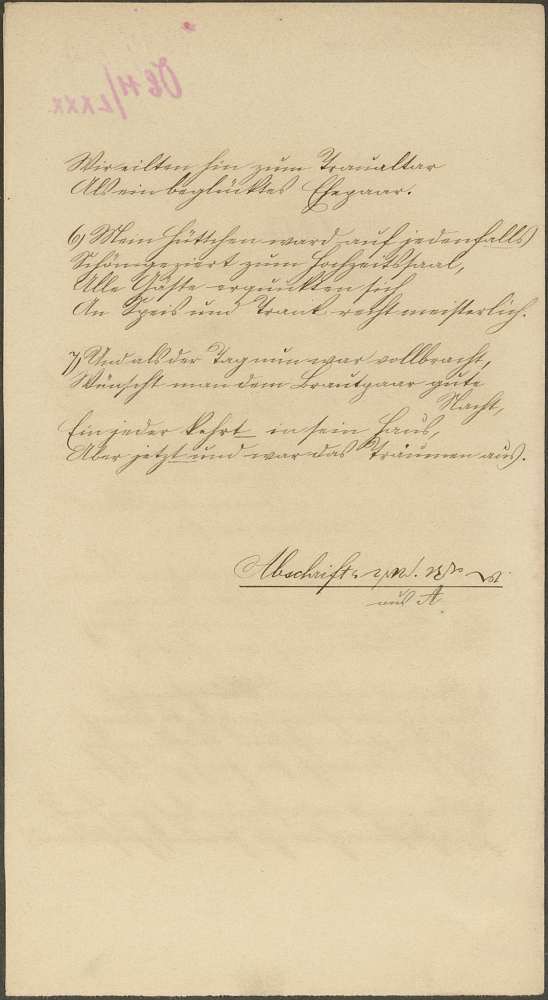 Wir eilten hin zum Traualtar
Als ein beglücktes Ehepaar.
6) Mein Hüttchen ward auf jedenfalls
Schön geziert zum Hochzeitssaal,
Alle Gäste erquickten sich
An Speis und Trank recht meisterlich.
7) Und als der Tag nun war vollbracht,
Wünscht man dem Brautpaar gute
Nacht,
Ein jeder kehrt in sein Haus,
Aber jetzt und war das Träumen aus.
Abschrift
aus A.